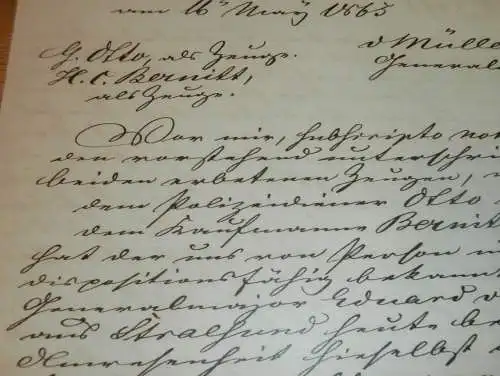 am 16ᵗ May 1863
G. Otto, als Zeuge.
v Mülle
H. C. Bernitt,
General
als Zeuge.
Vor mir, subscripto no
den vorstehend unterschri
beiden erbetenen Zeugen,
dem Polizeidiener Otto
dem Kaufmanne Bernit
hat der uns von Person
dispositionsfähig bekann
Generalmajor Eduard v
aus Stralsund heute be
Anwesenheit hieselbst